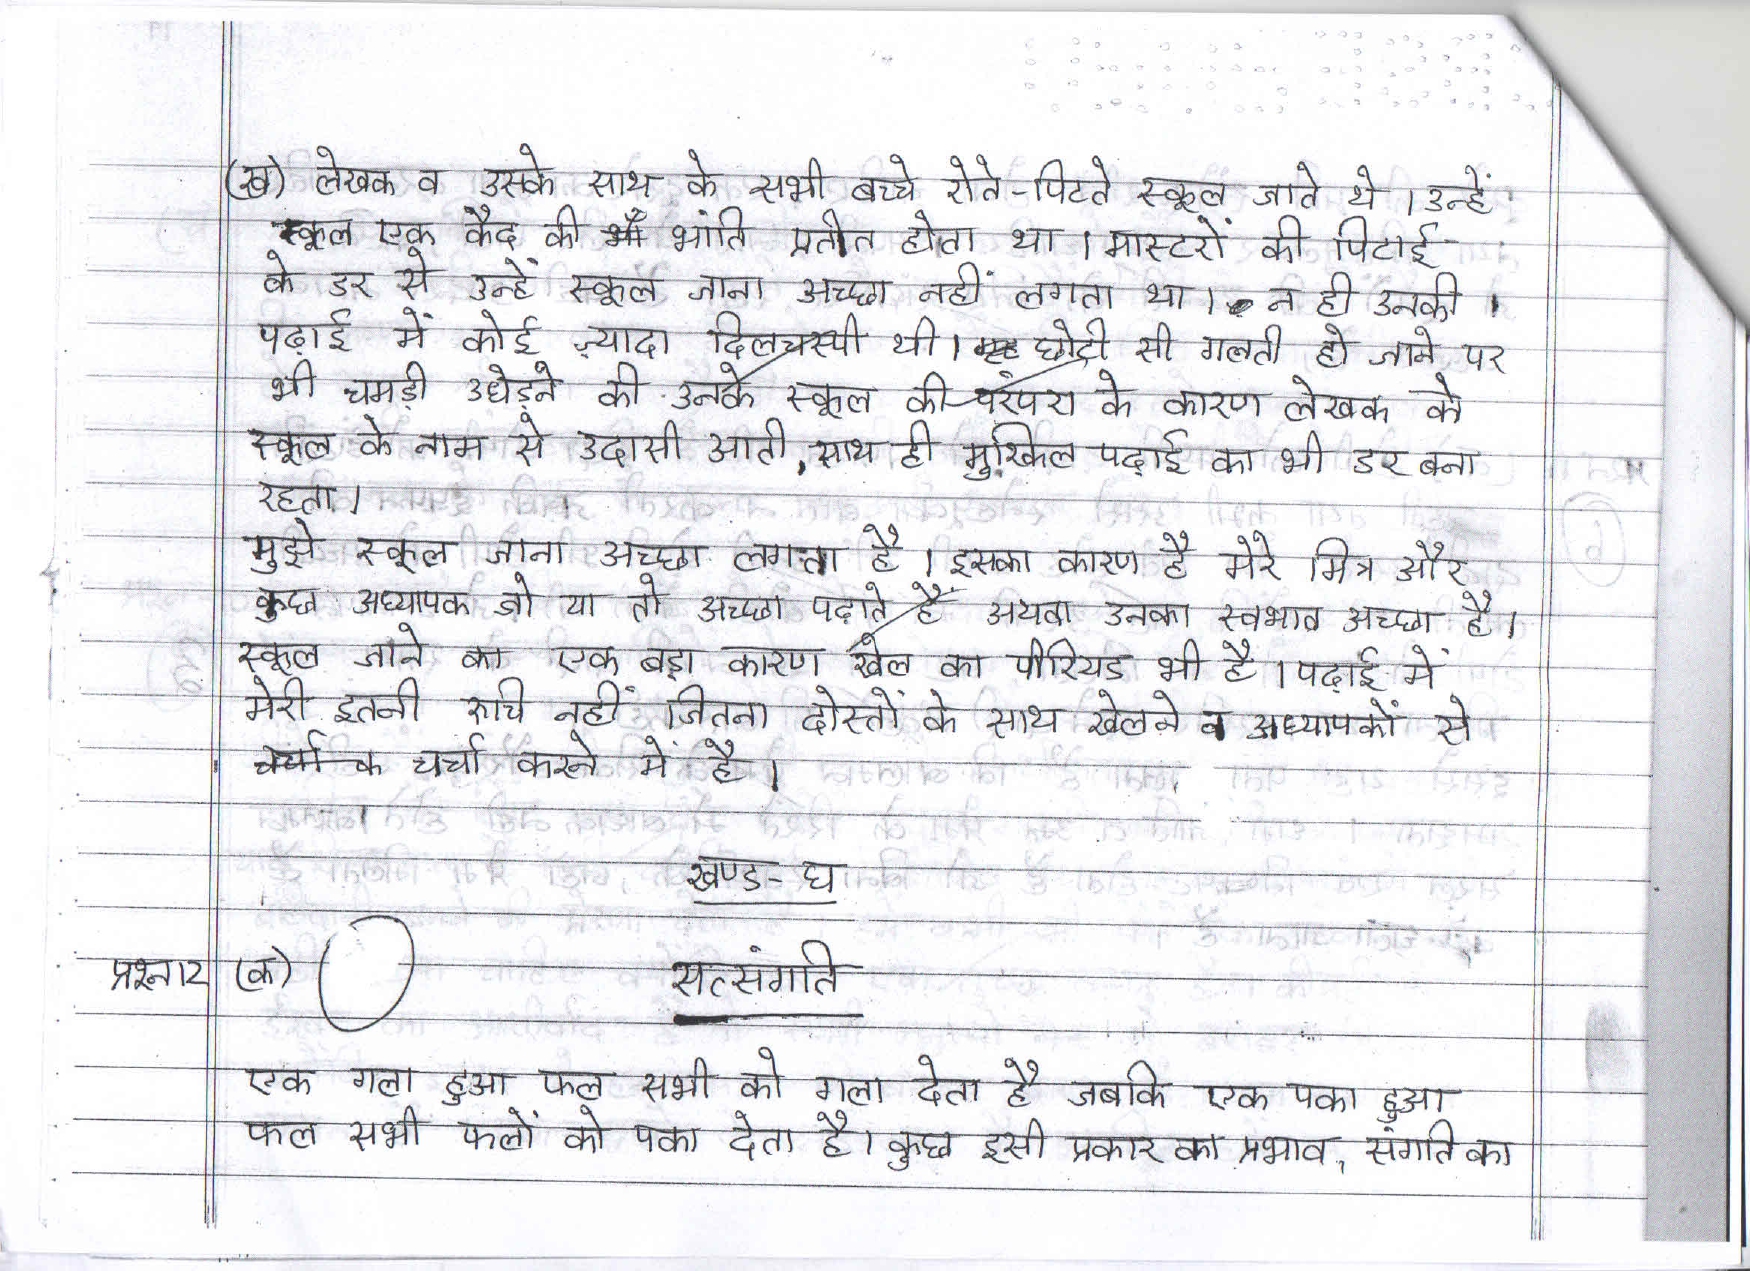 (ख) लेखक व उसके साथ के सभी बच्चे रोते-पिटते स्कूल जाते थे । उन्हें
स्कूल एक कैद की भाँ भांति प्रतीत होता था । मास्टरों की पिटाई
के डर से उन्हें स्कूल जाना अच्छा नहीं लगता था । न ही उनकी
पढ़ाई में कोई ज़्यादा दिलचस्पी थी । छोटी सी गलती हो जाने पर
भी चमड़ी उधेड़ने की उनके स्कूल की परंपरा के कारण लेखक को
स्कूल के नाम से उदासी आती, साथ ही मुश्किल पढ़ाई का भी डर बना
रहता ।
मुझे स्कूल जाना अच्छा लगता है । इसका कारण है मेरे मित्र और
कुछ अध्यापक जो या तो अच्छा पढ़ाते हैं अथवा उनका स्वभाव अच्छा है ।
स्कूल जाने का एक बड़ा कारण खेल का पीरियड भी है । पढ़ाई में
मेरी इतनी रुचि नहीं जितना दोस्तों के साथ खेलने व अध्यापकों से
चर्चा क चर्चा करने में है ।
खण्ड-घ
प्रश्न12 (क) सत्संगति
एक गला हुआ फल सभी को गला देता है जबकि एक पका हुआ
फल सभी फलों को पका देता है । कुछ इसी प्रकार का प्रभाव, संगति का